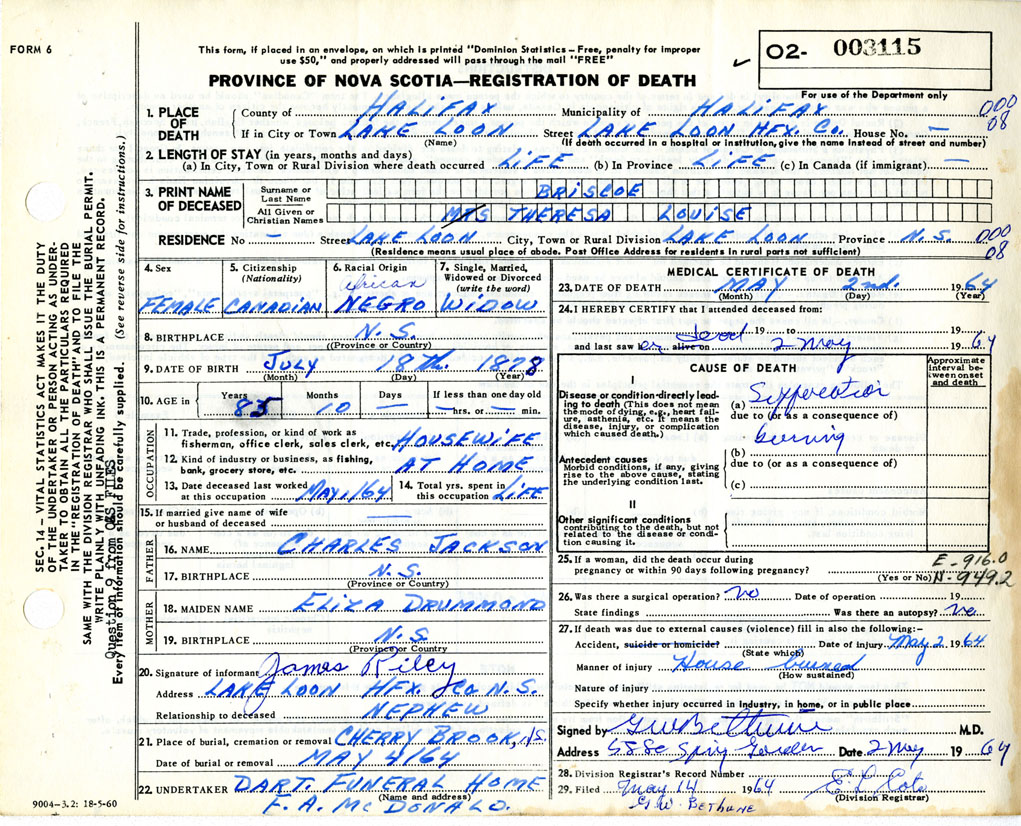 FORM 6
This form, if placed in an envelope, on which is printed "Dominion Statistics—Free, penalty for improper
use $50," and properly addressed will pass through the mail "FREE"
O2- 003115
For use of the Department only
PROVINCE OF NOVA SCOTIA—REGISTRATION OF DEATH
1. PLACE OF DEATH County of HALIFAX Municipality of HALIFAX 000
If in City or Town LAKE LOON Street LAKE LOON HFX. Co. House No. — 08
(Name) (If death occurred in a hospital or institution, give the name instead of street and number)
2. LENGTH OF STAY (in years, months and days)
(a) In City, Town or Rural Division where death occurred LIFE (b) In Province LIFE (c) In Canada (if immigrant) —
3. PRINT NAME OF DECEASED Surname or Last Name BRISCOE
All Given or Christian Names MRS THERESA LOUISE
RESIDENCE No — Street LAKE LOON City, Town or Rural Division LAKE LOON Province N.S. 000
08
(Residence means usual place of abode. Post Office Address for residents in rural parts not sufficient)
4. Sex FEMALE
5. Citizenship (Nationality) CANADIAN
6. Racial Origin African NEGRO
7. Single, Married, Widowed or Divorced (write the word) WIDOW
8. BIRTHPLACE N.S.
(Province or Country)
9. DATE OF BIRTH JULY 18Th. 1878
(Month) (Day) (Year)
10. AGE in Years 85 Months 10 Days — If less than one day old — hrs. or — min.
OCCUPATION
11. Trade, profession, or kind of work as
fisherman, office clerk, sales clerk, etc. HOUSEWIFE
12. Kind of industry or business, as fishing,
bank, grocery store, etc. AT HOME
13. Date deceased last worked
at this occupation MAY 1/64
14. Total yrs. spent in
this occupation LIFE
15. If married give name of wife
or husband of deceased —
FATHER
16. NAME CHARLES JACKSON
17. BIRTHPLACE N.S.
(Province or Country)
MOTHER
18. MAIDEN NAME ELIZA DRUMMOND
19. BIRTHPLACE N.S
(Province or Country)
20. Signature of informant James Riley
Address LAKE LOON HFX. Co N.S.
Relationship to deceased NEPHEW
21. Place of burial, cremation or removal CHERRY BROOK, N.S.
Date of burial or removal MAY 4/64
22. UNDERTAKER DART. FUNERAL HOME
(Name and address)
F. A. McDONALD.
9004-3.2: 18-5-60
MEDICAL CERTIFICATE OF DEATH
23. DATE OF DEATH MAY 2nd. 1964
(Month) (Day) (Year)
24. I HEREBY CERTIFY that I attended deceased from:
19 to 19
and last saw her alive on dead 2 May 1964
CAUSE OF DEATH
Approximate interval between onset and death
I
Disease or condition directly leading to death (This does not mean the mode of dying, e.g., heart failure, asthenia, etc. It means the disease, injury, or complication which caused death.)
(a)
due to (or as a consequence of)
burning
Antecedent causes
Morbid conditions, if any, giving rise to the above cause, stating the underlying condition last.
(b)
due to (or as a consequence of)
(c)
II
Other significant conditions
contributing to the death, but not related to the disease or condition causing it.
25. If a woman, did the death occur during
pregnancy or within 90 days following pregnancy?
(Yes or No)
E-916.0
N-949.2
26. Was there a surgical operation? No Date of operation 19
State findings Was there an autopsy? No
27. If death was due to external causes (violence) fill in also the following:—
Accident, suicide or homicide? Date of injury May 2 1964
(State which)
Manner of injury House burned
(How sustained)
Nature of injury
Specify whether injury occurred in industry, in home, or in public place
Signed by GW Bethune M.D.
Address 5880 Spring Garden Date 2 May 1964
28. Division Registrar's Record Number
29. Filed May 14 1964
(Division Registrar)
G.W. BETHUNE
SEC. 14—VITAL STATISTICS ACT MAKES IT THE DUTY
OF THE UNDERTAKER OR PERSON ACTING AS UNDER-
TAKER TO OBTAIN ALL THE PARTICULARS REQUIRED
IN THE "REGISTRATION OF DEATH" AND TO FILE THE
SAME WITH THE DIVISION REGISTRAR WHO SHALL ISSUE THE BURIAL PERMIT.
WRITE PLAINLY WITH UNFADING INK. THIS IS A PERMANENT RECORD.
Question 9 from OAS FILES
Every item of information should be carefully supplied. (See reverse side for instructions.)